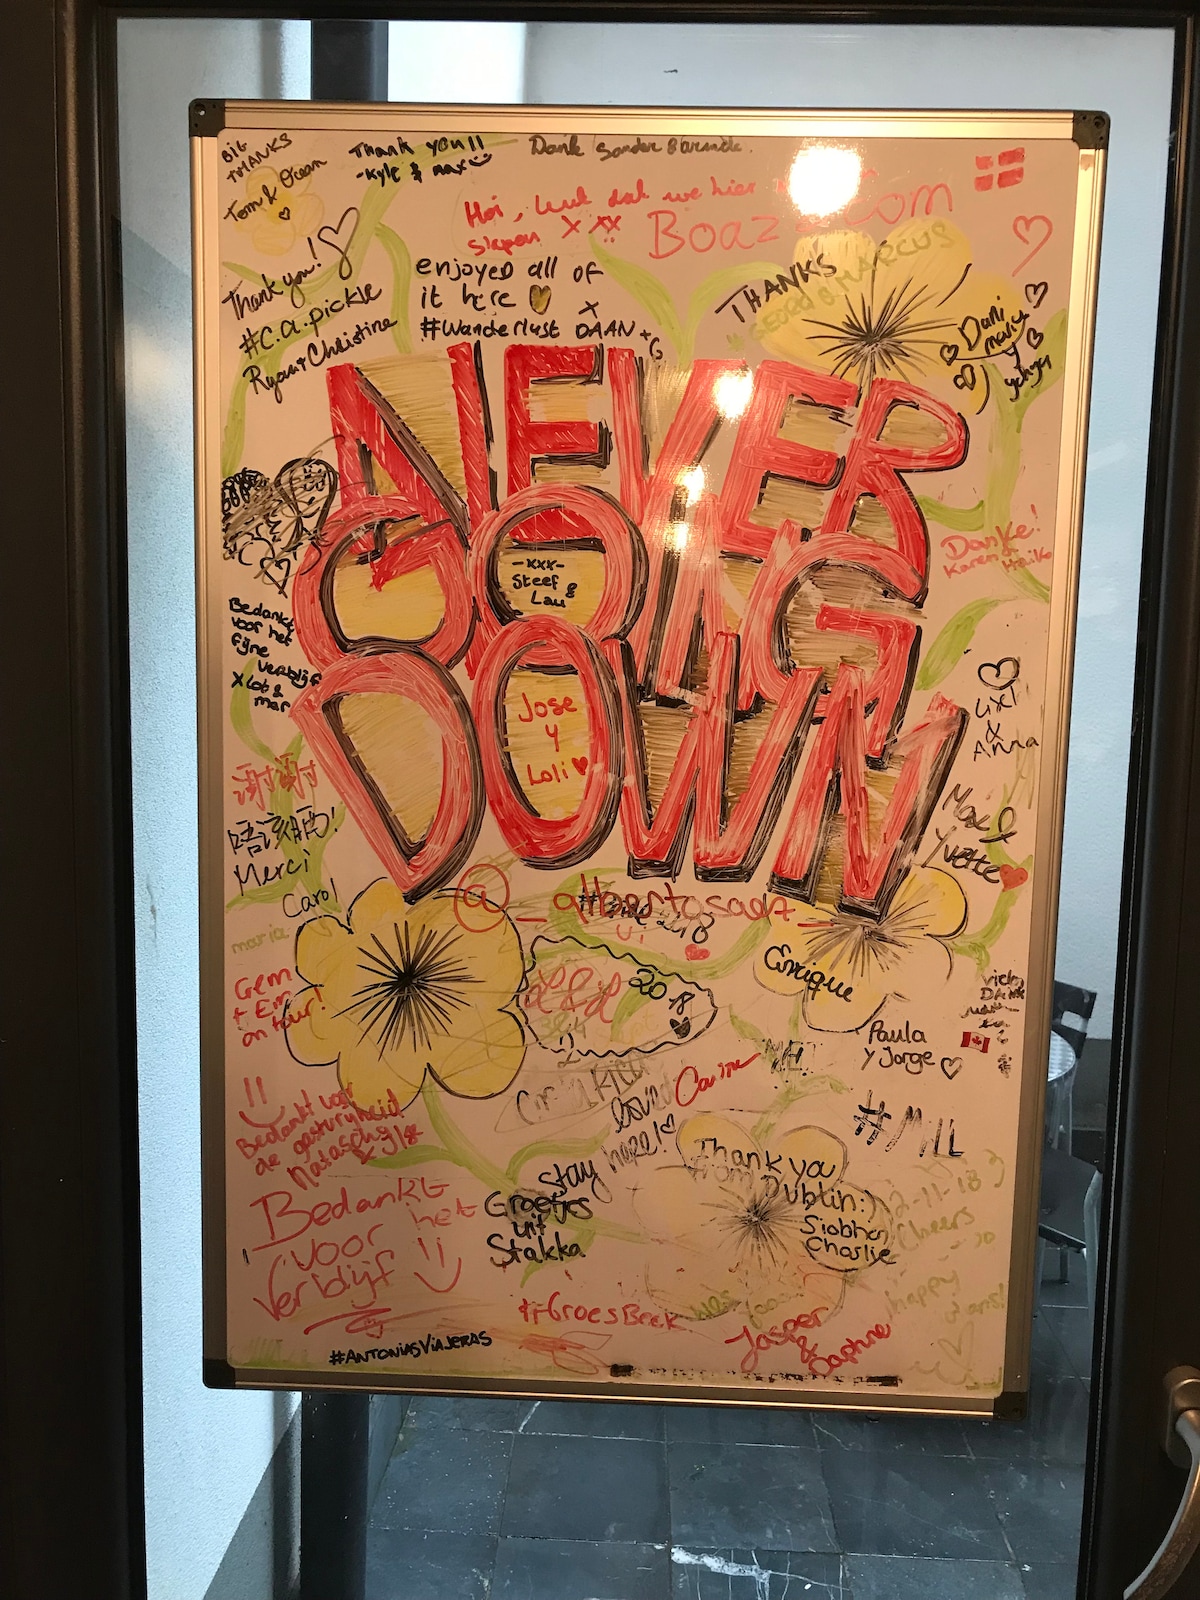 BIG
THANKS
Tom & Ocean
Thank you!!
-Kyle & max
Dank Sander
Hoi, leuk dat we hier
slapen X XX
Boaz
com
Thank you!
#C.a.pickle
Ryan + Christine
enjoyed all of
it here
X
#Wanderlust DAAN + G
THANKS
GEORG & MARCUS
Dani
maria
y
yenya
NEVER
GOING
DOWN
-xxx-
Steef &
Lau
Jose
y
Loli
Danke!
Karen & Heiko
Bedankt
voor het
fijne
verblijf
X Lot &
mar
&
Anna
Max &
Yvette
谢谢
唔該晒!
Merci
Carol
maria
Gem
+ Em
on tour!
@_albertosaez
2018
Enrique
20
18
Paula
y Jorge
viel
Dank
Carine
#MILL
Bedankt voor
de gastvrijheid
Natascha
stay
here!
Thank you
from Dublin:)
Siobhan
Charlie
2-11-18
Cheers
Bedankt
voor het
verblijf
Groetjes
uit
Stakka
#GroesBeek
was
good
happy
Jasper
&
Daphne
#ANTONIASVIAJERAS